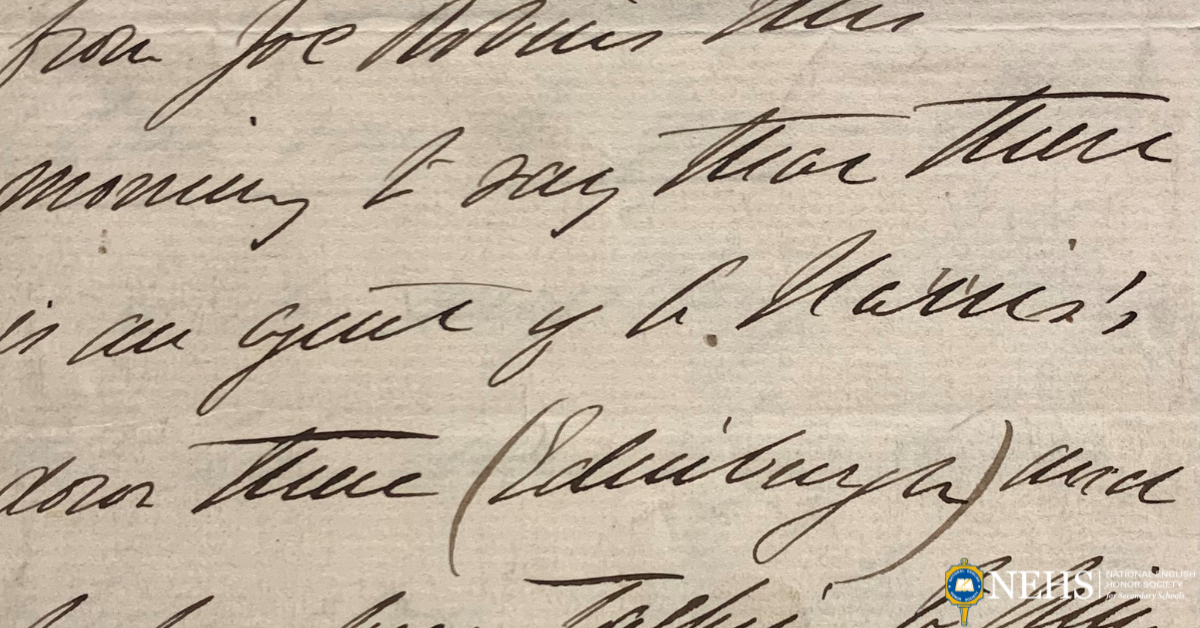 from Joe this
morning to say that there
is an agent of Harris's
down there (Edinburgh) and
NEHS
NATIONAL ENGLISH
HONOR SOCIETY
for Secondary Schools